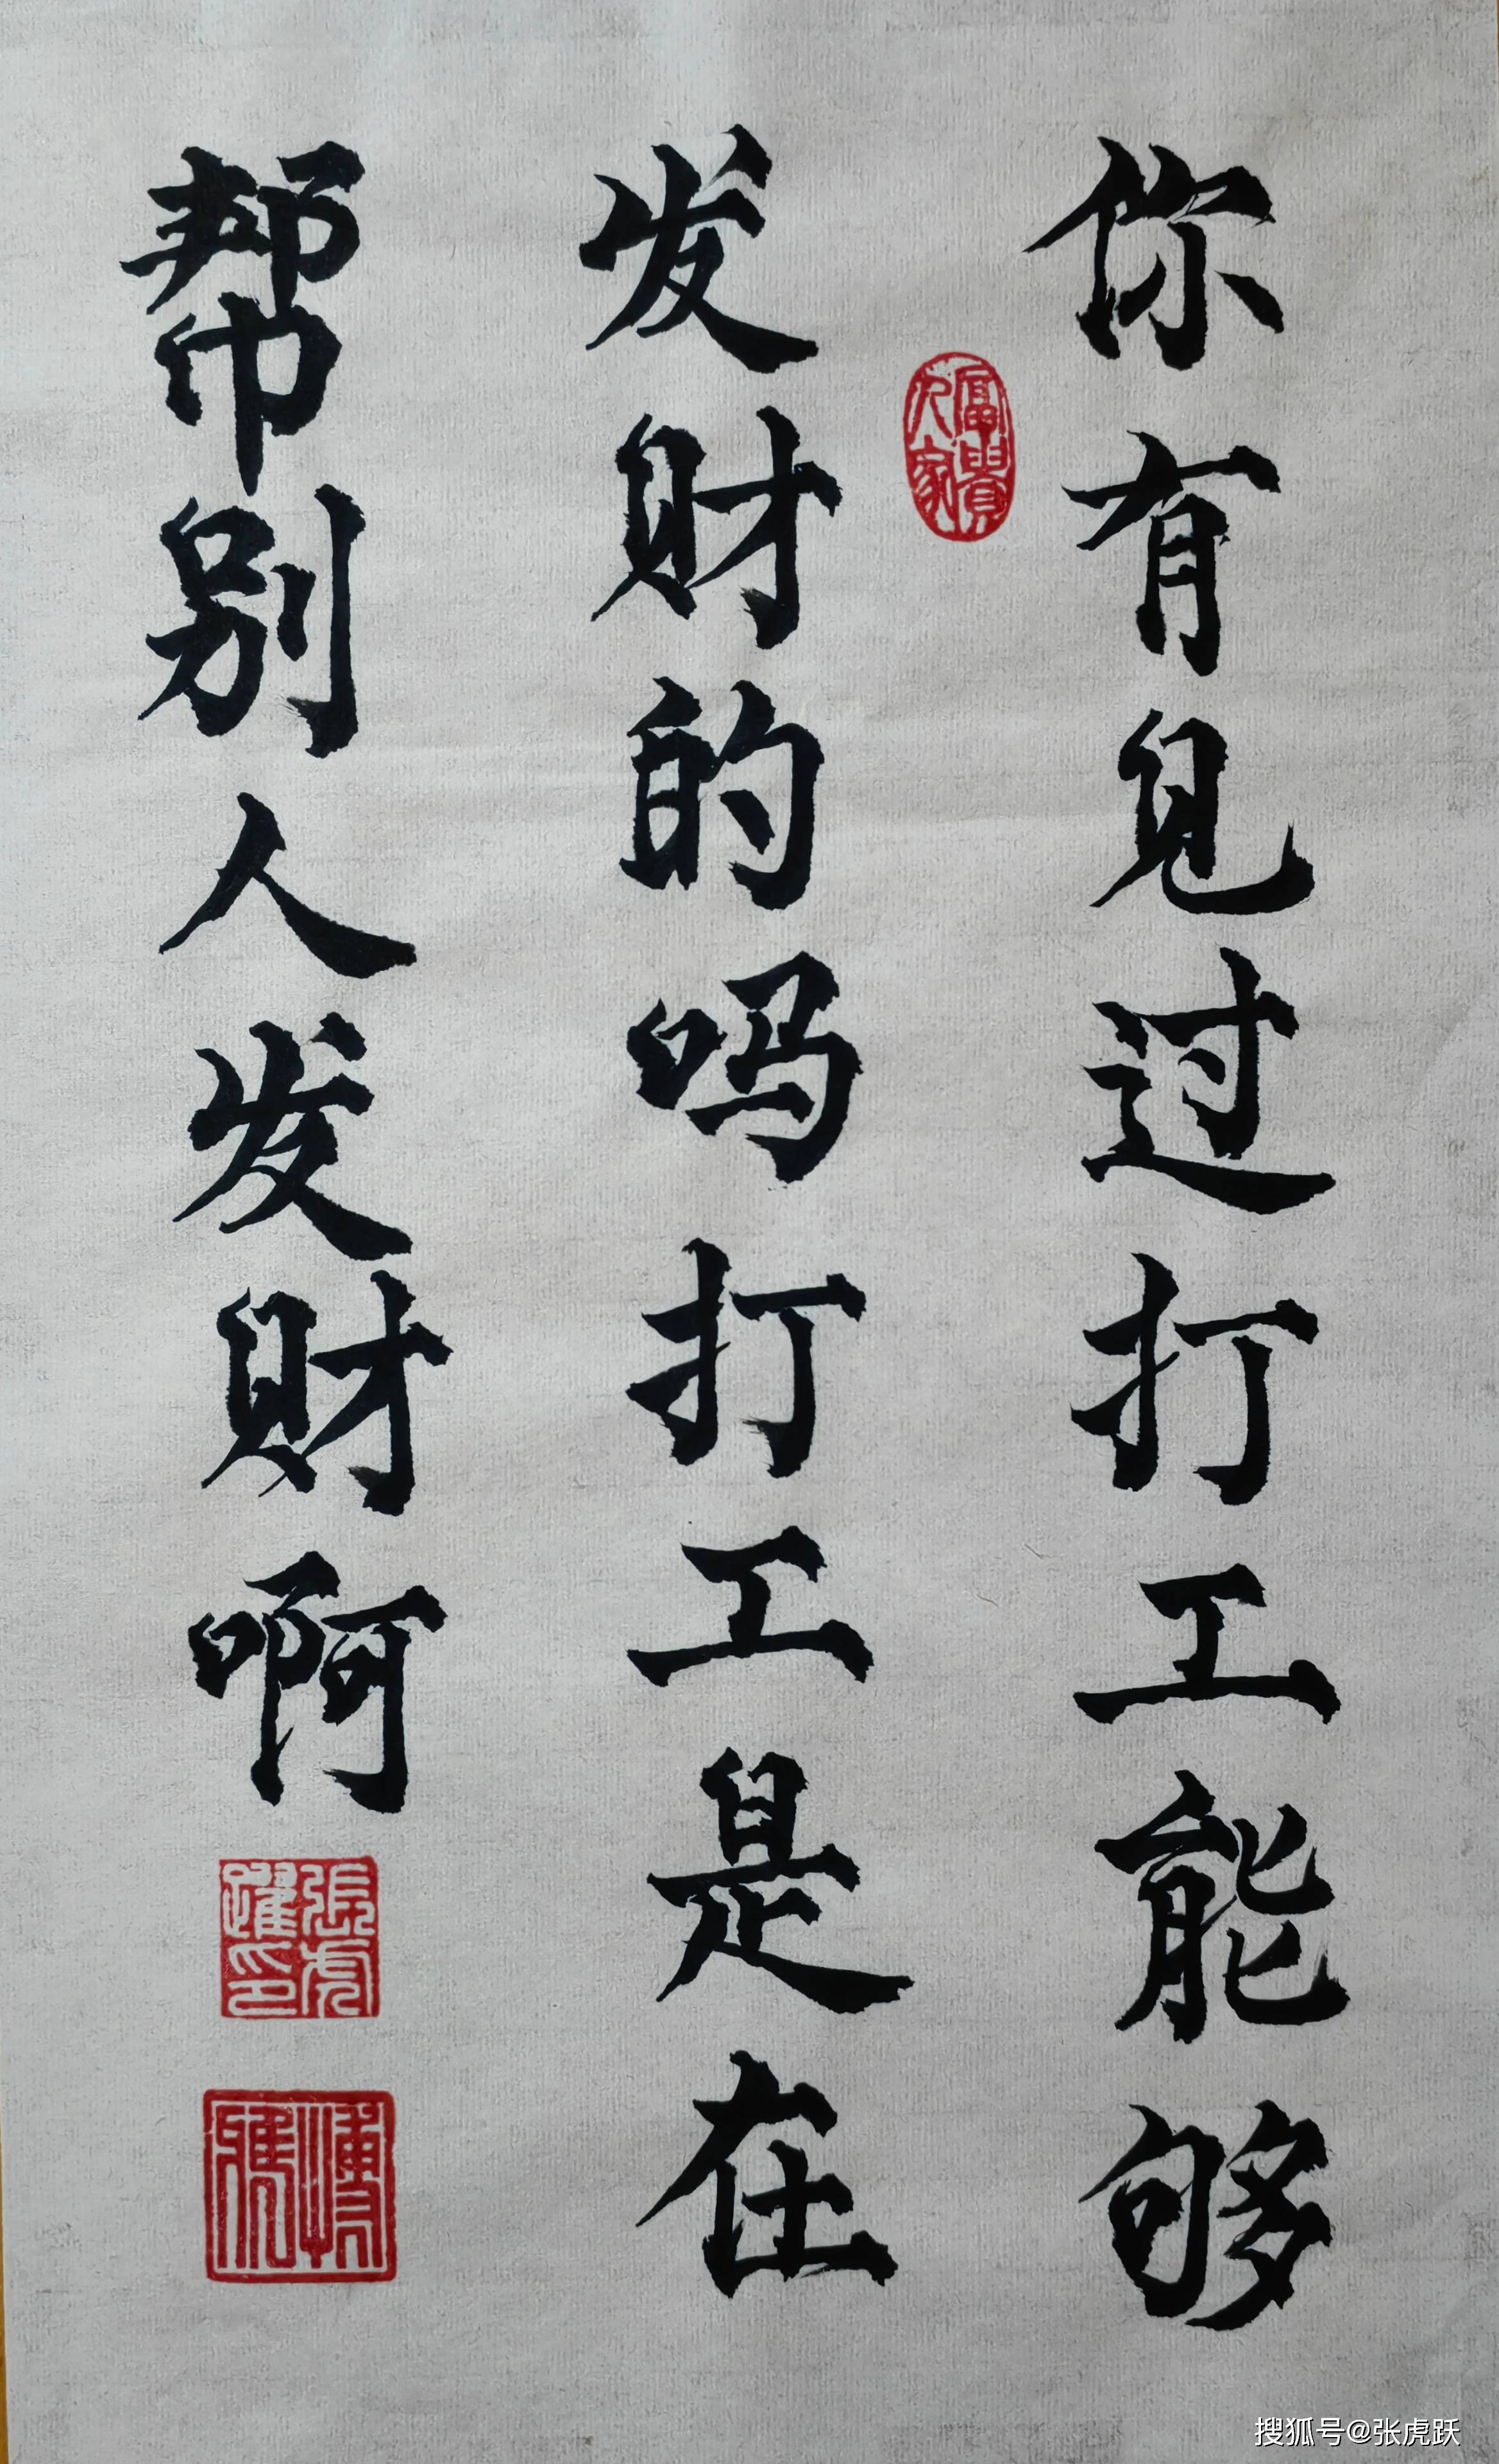 你有见过打工能够
发财的吗打工是在
帮别人发财啊
富貴人家
張虎躍印
搜狐号@张虎跃